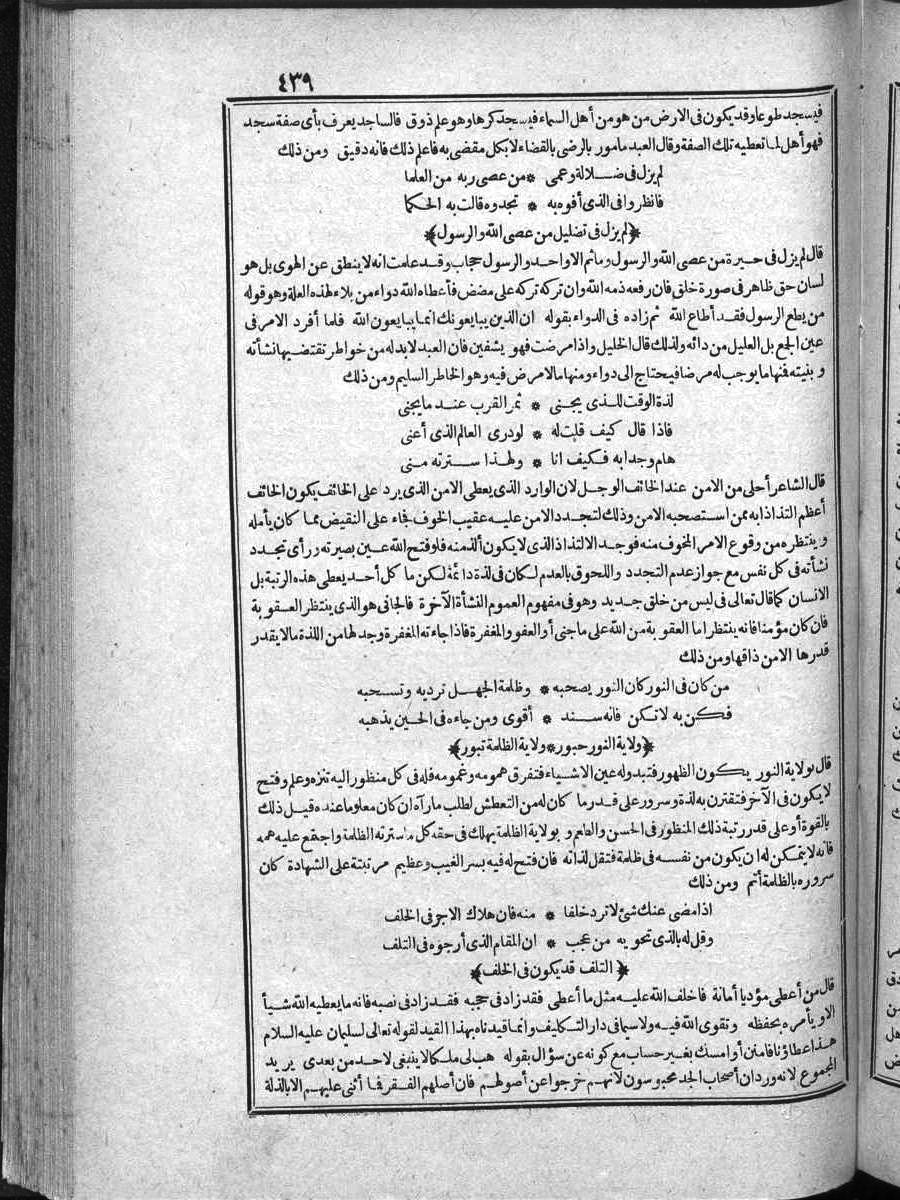 ٤٣٩
فيسجد طوعا وقد يكون فى الارض من هو من أهل السماء فيسجد كرها وهو علم ذوق فالساجد يعرف بأى صفة سجد
فهو أهل لما تعطيه تلك الصفة وقال العبد مامور بالرضى بالقضاء لا بكل مقضى به فاعلم ذلك فانه دقيق ومن ذلك
لم يزل فى ضلالة وعمى * من عصى ربه من العلما
فانظروا فى الذى أفوه به * تجدوه قالت به الحكما
﴿لم يزل فى تضليل من عصى الله والرسول﴾
قال لم يزل فى حيرة من عصى الله والرسول وما ثم الا واحد والرسول حجاب وقد علمت انه لا ينطق عن الهوى بل هو
لسان حق ظاهر فى صورة خلق فان رفعه ذمه الله وان تركه تركه على مضض فأعطاه الله دواء من بلاء لهذه العلة وهو قوله
من يطع الرسول فقد أطاع الله ثم زاده فى الدواء بقوله ان الذين يبايعونك انما يبايعون الله فلما أفرد الامر فى
عين الجمع بل العليل من دائه ولذلك قال الخليل واذا مرضت فهو يشفين فان العبد لا بد له من خواطر تقتضيها نشأته
وبنيته فمنها ما يوجب له مرضا فيحتاج الى دواء ومنها ما لا مرض فيه وهو الخاطر السليم ومن ذلك
لذة الوقت للذى يجنى * ثمر القرب عند ما يجنى
فاذا قال كيف قلت له * لو درى العالم الذى أعنى
هام وجدا به فكيف انا * ولهذا سترته منى
قال الشاعر أحلى من الامن عند الخائف الوجل لان الوارد الذى يعطى الامن الذى يرد على الخائف يكون الخائف
أعظم التذاذا به ممن استصحبه الامن وذلك لتجدد الامن عليه عقيب الخوف فجاء على النقيض مما كان يأمله
وينتظره من وقوع الامر المخوف منه فوجد الالتذاذ الذى لا يكون ألذ منه فلو فتح الله عين بصيرته ورأى تجدد
نشأته فى كل نفس مع جواز عدم التجدد واللحوق بالعدم لكان فى لذة دائمة لكن ما كل أحد يعطى هذه الرتبة بل
الانسان كما قال تعالى فى لبس من خلق جديد وهو فى مفهوم العموم النشأة الآخرة فالجانى هو الذى ينتظر العقوبة
فان كان مؤمنا فانه ينتظر اما العقوبة من الله على ما جنى أو العفو والمغفرة فاذا جاءته المغفرة وجد لها من اللذة ما لا يقدر
قدرها الا من ذاقها ومن ذلك
من كان فى النور كان النور يصحبه * وظلمة الجهل ترديه وتسحبه
فكن به لا تكن فانه سند * أقوى ومن جاءه فى الحين يذهبه
﴿ولاية النور حبور * ولاية الظلمة تبور﴾
قال بولاية النور يكون الظهور فتبدو له عين الاشياء فتفرق همومه وغمومه فله فى كل منظور اليه تنزه وعلم وفتح
لا يكون فى الآخر فتقترن به لذة وسرور على قدر ما كان له من التعطش لطلب ما رآه ان كان معلوما عنده قبل ذلك
بالقوة أو على قدر رتبة ذلك المنظور فى الحسن والعلم وبولاية الظلمة يهلك فى حقه كل ما سترته الظلمة واجتمع عليه همه
فانه لا يتمكن له ان يكون من نفسه فى ظلمة فتقل لذاته فان فتح له فيه بسر الغيب وعظيم مرتبته على الشهادة كان
سروره بالظلمة أتم ومن ذلك
اذا مضى عنك شئ لا ترد خلفا * منه فان هلاك الاجر فى الخلف
وقل له بالذى تحويه من عجب * ان المقام الذى أرجوه فى التلف
﴿التلف قد يكون فى الخلف﴾
قال من أعطى مؤديا أمانة فاخلف الله عليه مثل ما أعطى فقد زاد فى حجبه فقد زاد فى نصبه فانه ما يعطيه الله شيأ
الا ويأمره بحفظه وتقوى الله فيه ولا سيما فى دار التكليف وانما قيدناه بهذا القيد لقوله تعالى لسلمان عليه السلام
هذا عطاؤنا فامنن أو امسك بغير حساب مع كونه عن سؤال بقوله هب لى ملكا لا ينبغى لاحد من بعدى يريد
المجموع لانه ورد ان أصحاب الجد محبوسون لانهم خرجوا عن أصولهم فان أصلهم الفقر فما أثنى عليهم الا بالذلة